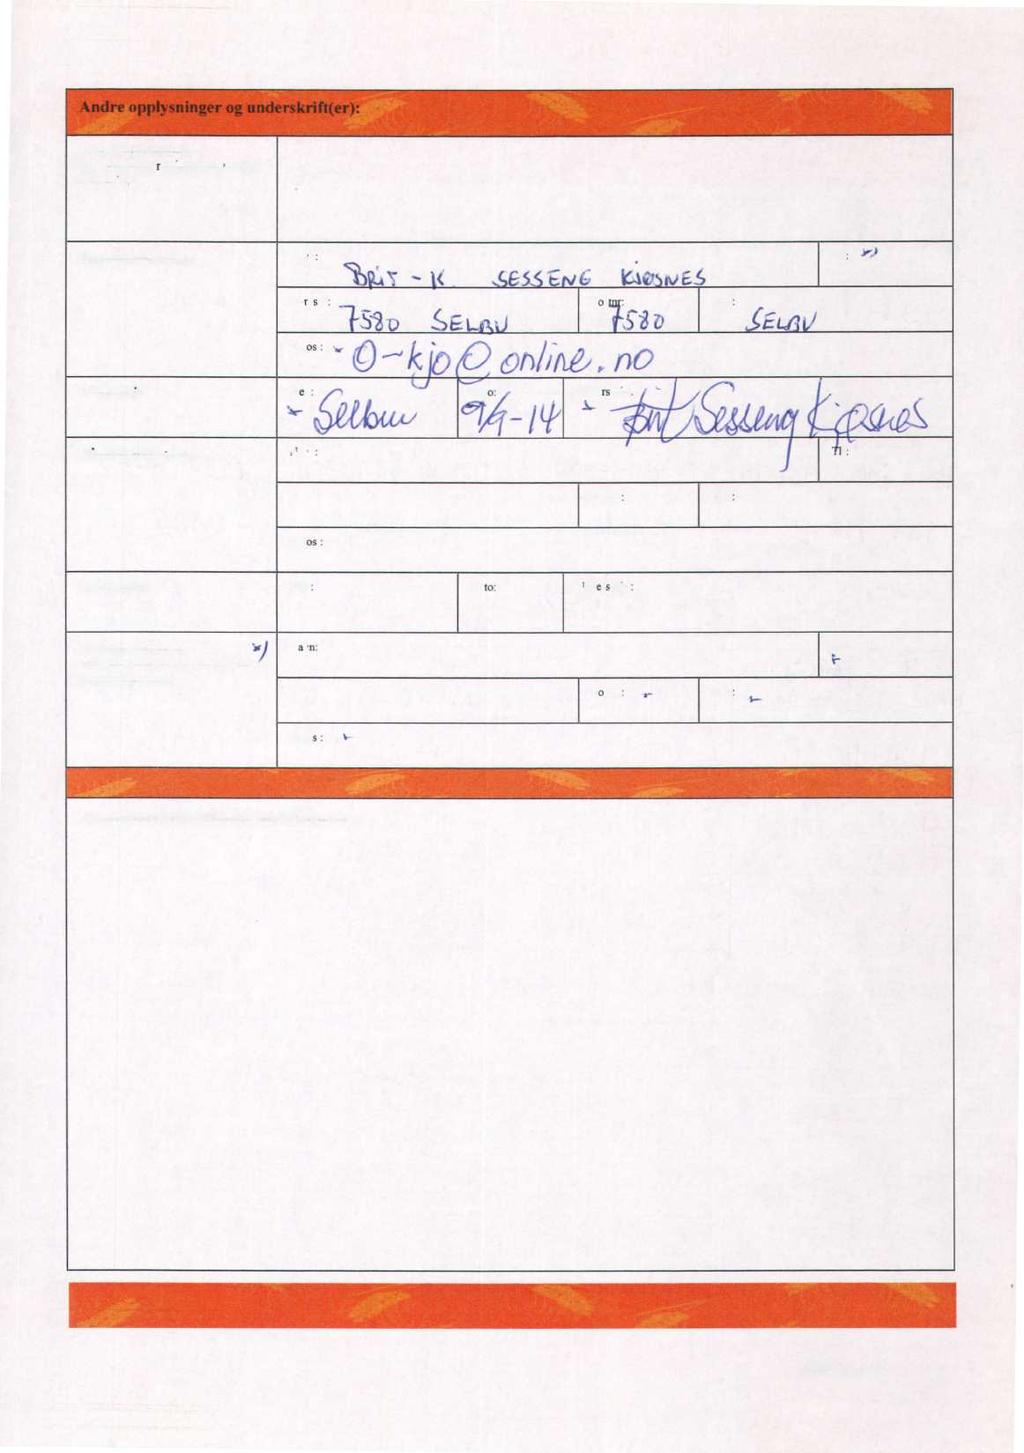 Andre opplysninger og underskrift(er):
BRIT - K SESSENG KJØSNES
7580 SELBU 7580 SELBU
os: O-kjo@online.no
e : Selbu o: 9/9-14 rs : Brit Sesseng Kjøsnes
Tl :
os :
to: e s :
a n:
o :
s :